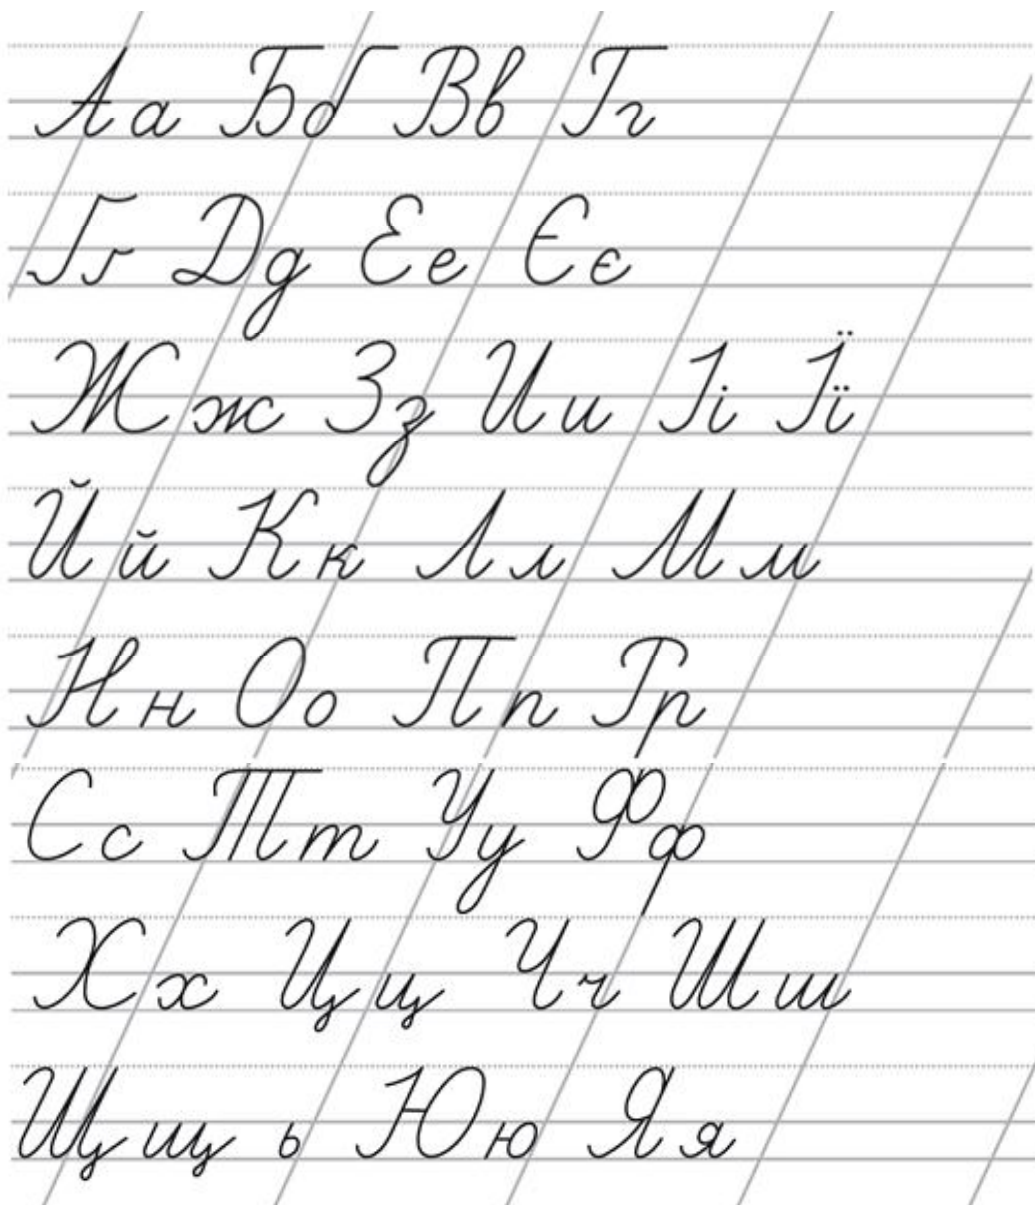 Аа Бб Вв Гг
Ґґ Дд Ее Єє
Жж Зз Ии Іі Її
Йй Кк Лл Мм
Нн Оо Пп Рр
Сс Тт Уу Фф
Хх Цц Чч Шш
Щщ ь Юю Яя